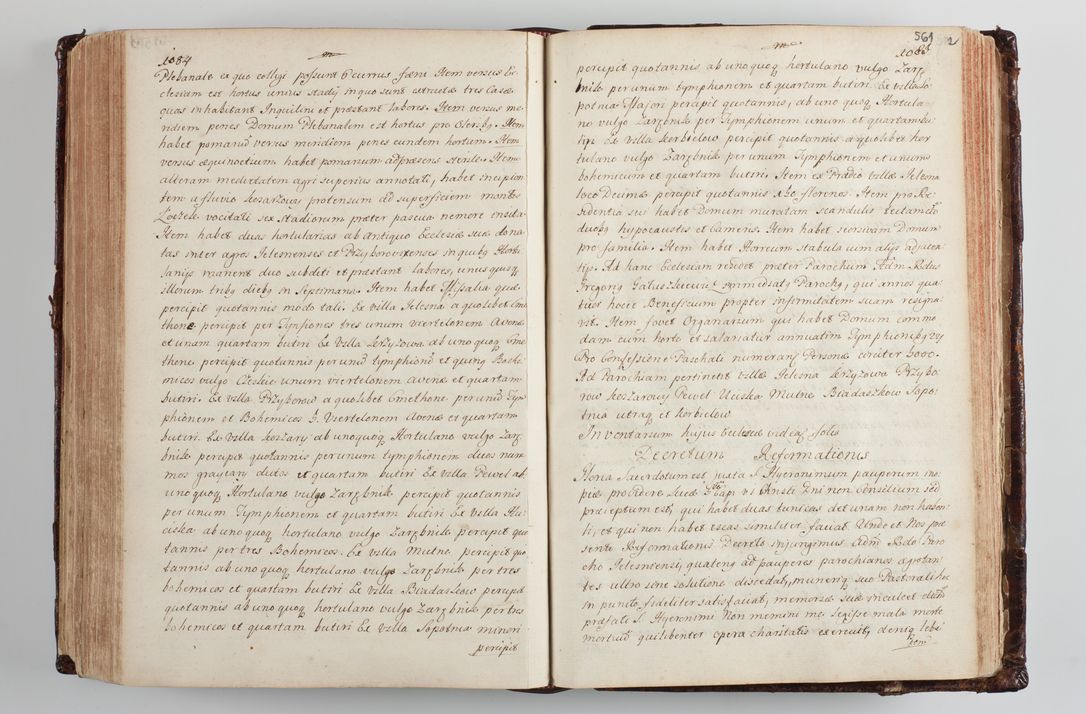 1084
Plebanale ex quo colligi possunt 6 currus faeni Item versus Ec-
clesiam est hortus unius stadij in quo sunt extructae tres Casae
quas inhabitant Inquilini et praestant labores. Item versus me-
ridiem penes Domum Plebanalem est hortus pro Olerib9. Item
habet pomariū versus meridiem penes eundem hortum. Item
versus aequinoctium habet pomarium ad praesens sterile. Item
alteram medietatem agri superius annotati, habet incipien-
tem a fluvio Koszarowa protensum ad superficiem montis
vocitati sex stadiorum praeter pascua nemore insita
Item habet duas hortularias ab antiquo Ecclesiae suae dona-
tas inter agros Jelesnenses et Przyborovienses in quib9 Hortu-
lanijs manent duo subditi et praestant labores, unusquisq3
illorum trib9 dieb9 in Septimana. Item habet Missalia quae
percipit quotannis modo tali. Ex villa Jelesna a quolibet Cme-
thone percipit per Tynfiones tres unum viertelonem Avenae
et unam quartam butiri Ex villa Krzyzowa ab uno quoq3 Cme-
thone percipit quotannis per unū tymphionē et quinq3 Bohe-
micos vulgo Czeskie unum viertelonem avenae et quartam
butiri. Ex villa Przyborow a quolibet Cmethone per unū Tym-
phionem et Bohemicos 5. Viertelonem Avenae et quartam
butiri. Ex villa Koszary ab unoquoq3 Hortulano vulgo Zarę-
bnik percipit quotannis per unum tymphionem duos num-
mos dutos et quartam butiri Ex villa Pewel ab
unoquoq3 Hortulano vulgo Zarębnik percipit quotannis
per unum Tymphionem et quartam butiri Ex villa Hu-
ciska ab uno quoq3 hortulano vulgo Zarębnik percipit quo-
tannis per tres Bohemicos. Ex villa Mutne percipit quo-
tannis ab uno quoq3 hortulano vulgo Zarębnik per tres
bohemicos et quartam butiri Ex villa Biadaszkow percipit
quotannis ab uno quoq3 hortulano vulgo Zarębnik per tres
bohemicos et quartam butiri Ex villa Sopotnia minori
percipit
561
2
1085
percipit quotannis ab uno quoq3 hortulano vulgo Zarę-
bnik per unum tymphionem et quartam butiri. Ex villa So-
potnia Majori percipit quotannis, ab uno quoq3 Hortula-
no vulgo Zarębnik per Tymphionem unum et quartam bu-
tiri Ex villa Korbielow percipit quotannis a quolibet hor
tulano vulgo Zarębnik per unum Tymphionem et unum
bohemicum et quartam butiri. Item ex Praedio villae Jelesna
loco Decimae percipit quotannis florenos. Item pro Re-
sidentia sui habet Domum muratam scandulis tectam cū
duob9 hypocaustis et Cameris. Item habet seorsivam Domum
pro familia. Item habet Horreum stabula cum alijs adjacen-
tijs. Ad hanc Ecclesiam residet praeter Parochum Adm Rdus
Gregori9 Gałuszkiewicz Commendari9 Parochi, qui annos qua-
tuor hocce Beneficium propter infirmitatem suam resigna-
vit. Item fovet Organarium qui habet Domum commo-
dam cum horto et salariatur annuatim Tymphionib9
Pro Confessione Paschali numerant Personae circiter 3000.
Ad Parochiam pertinent villae Jelesna Krzyzowa Przybo-
row Koszarowy Pewel Uciska Mutno Biadaszkow Sopo-
tnia utraq3 et Korbielow
Inventarium hujus Ecclesiae videat folio
Decretum Reformationis
Gloria Sacerdotum est juxta S. Hyeronimum pauperum ino-
piae providere Lucae 3tio Cap: vs Christi Dni non Consilium sed
praeceptum est, qui habet duas tunicas det unam non haben-
ti, et qui non habet escas similiter faciat. Unde et Nos prae-
senti Reformationis Decreto injungimus Adm Rdo Paro-
cho Jelesnensi, quaten9 ad pauperes parochianos aegrotan-
tes ultro sine solutione discedat, munerīq3 suo Pastorali hoc
in puncto fideliter satisfaciat, memoriae suae inculcet dictū
praefati S. Hyeronimi Non memini me legisse mala morte
mortuū qui libenter opera charitatis exercuit, deniq3 lebi-
tem